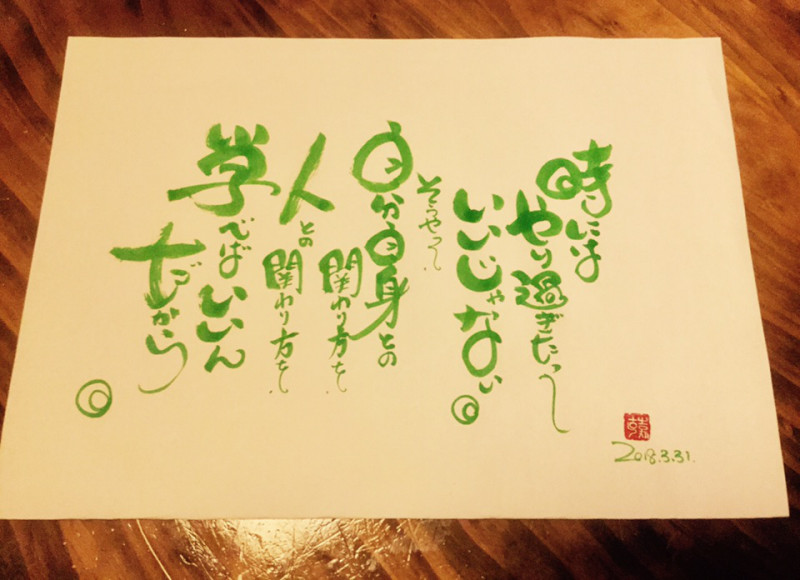 時には
やり過ぎたって
いいじゃない。
そうやって、
自分自身との
関わり方を、
人との
関わり方を、
学べばいいん
だから。
2018.3.31.